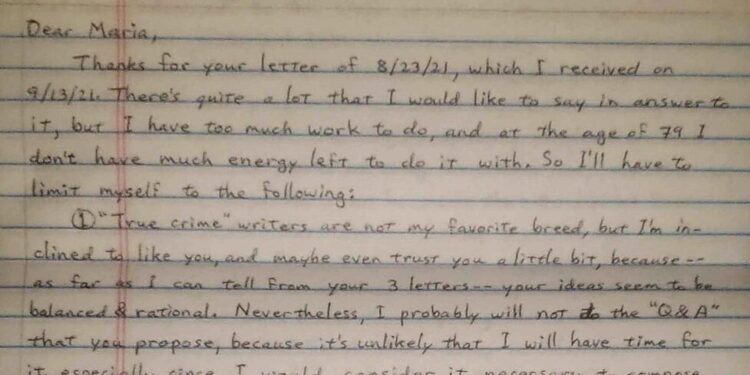 Dear Maria,
Thanks for your letter of 8/23/21, which I received on
9/13/21. There's quite a lot that I would like to say in answer to
it, but I have too much work to do, and at the age of 79 I
don't have much energy left to do it with. So I'll have to
limit myself to the following:
① "True crime" writers are not my favorite breed, but I'm in-
clined to like you, and maybe even trust you a little bit, because--
as far as I can tell from your 3 letters-- your ideas seem to be
balanced & rational. Nevertheless, I probably will not do the "Q & A"
that you propose, because it's unlikely that I will have time for
it especially since I would consider it necessary compose